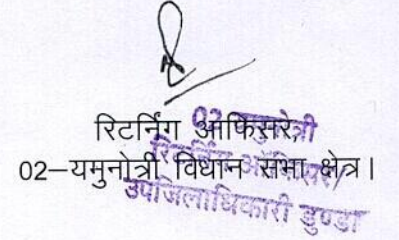 रिटर्निंग आफिसर,
02–यमुनोत्री विधान सभा क्षेत्र।
02 यमुनोत्री
रिटर्निंग ऑफिसर/
उपजिलाधिकारी डुण्डा